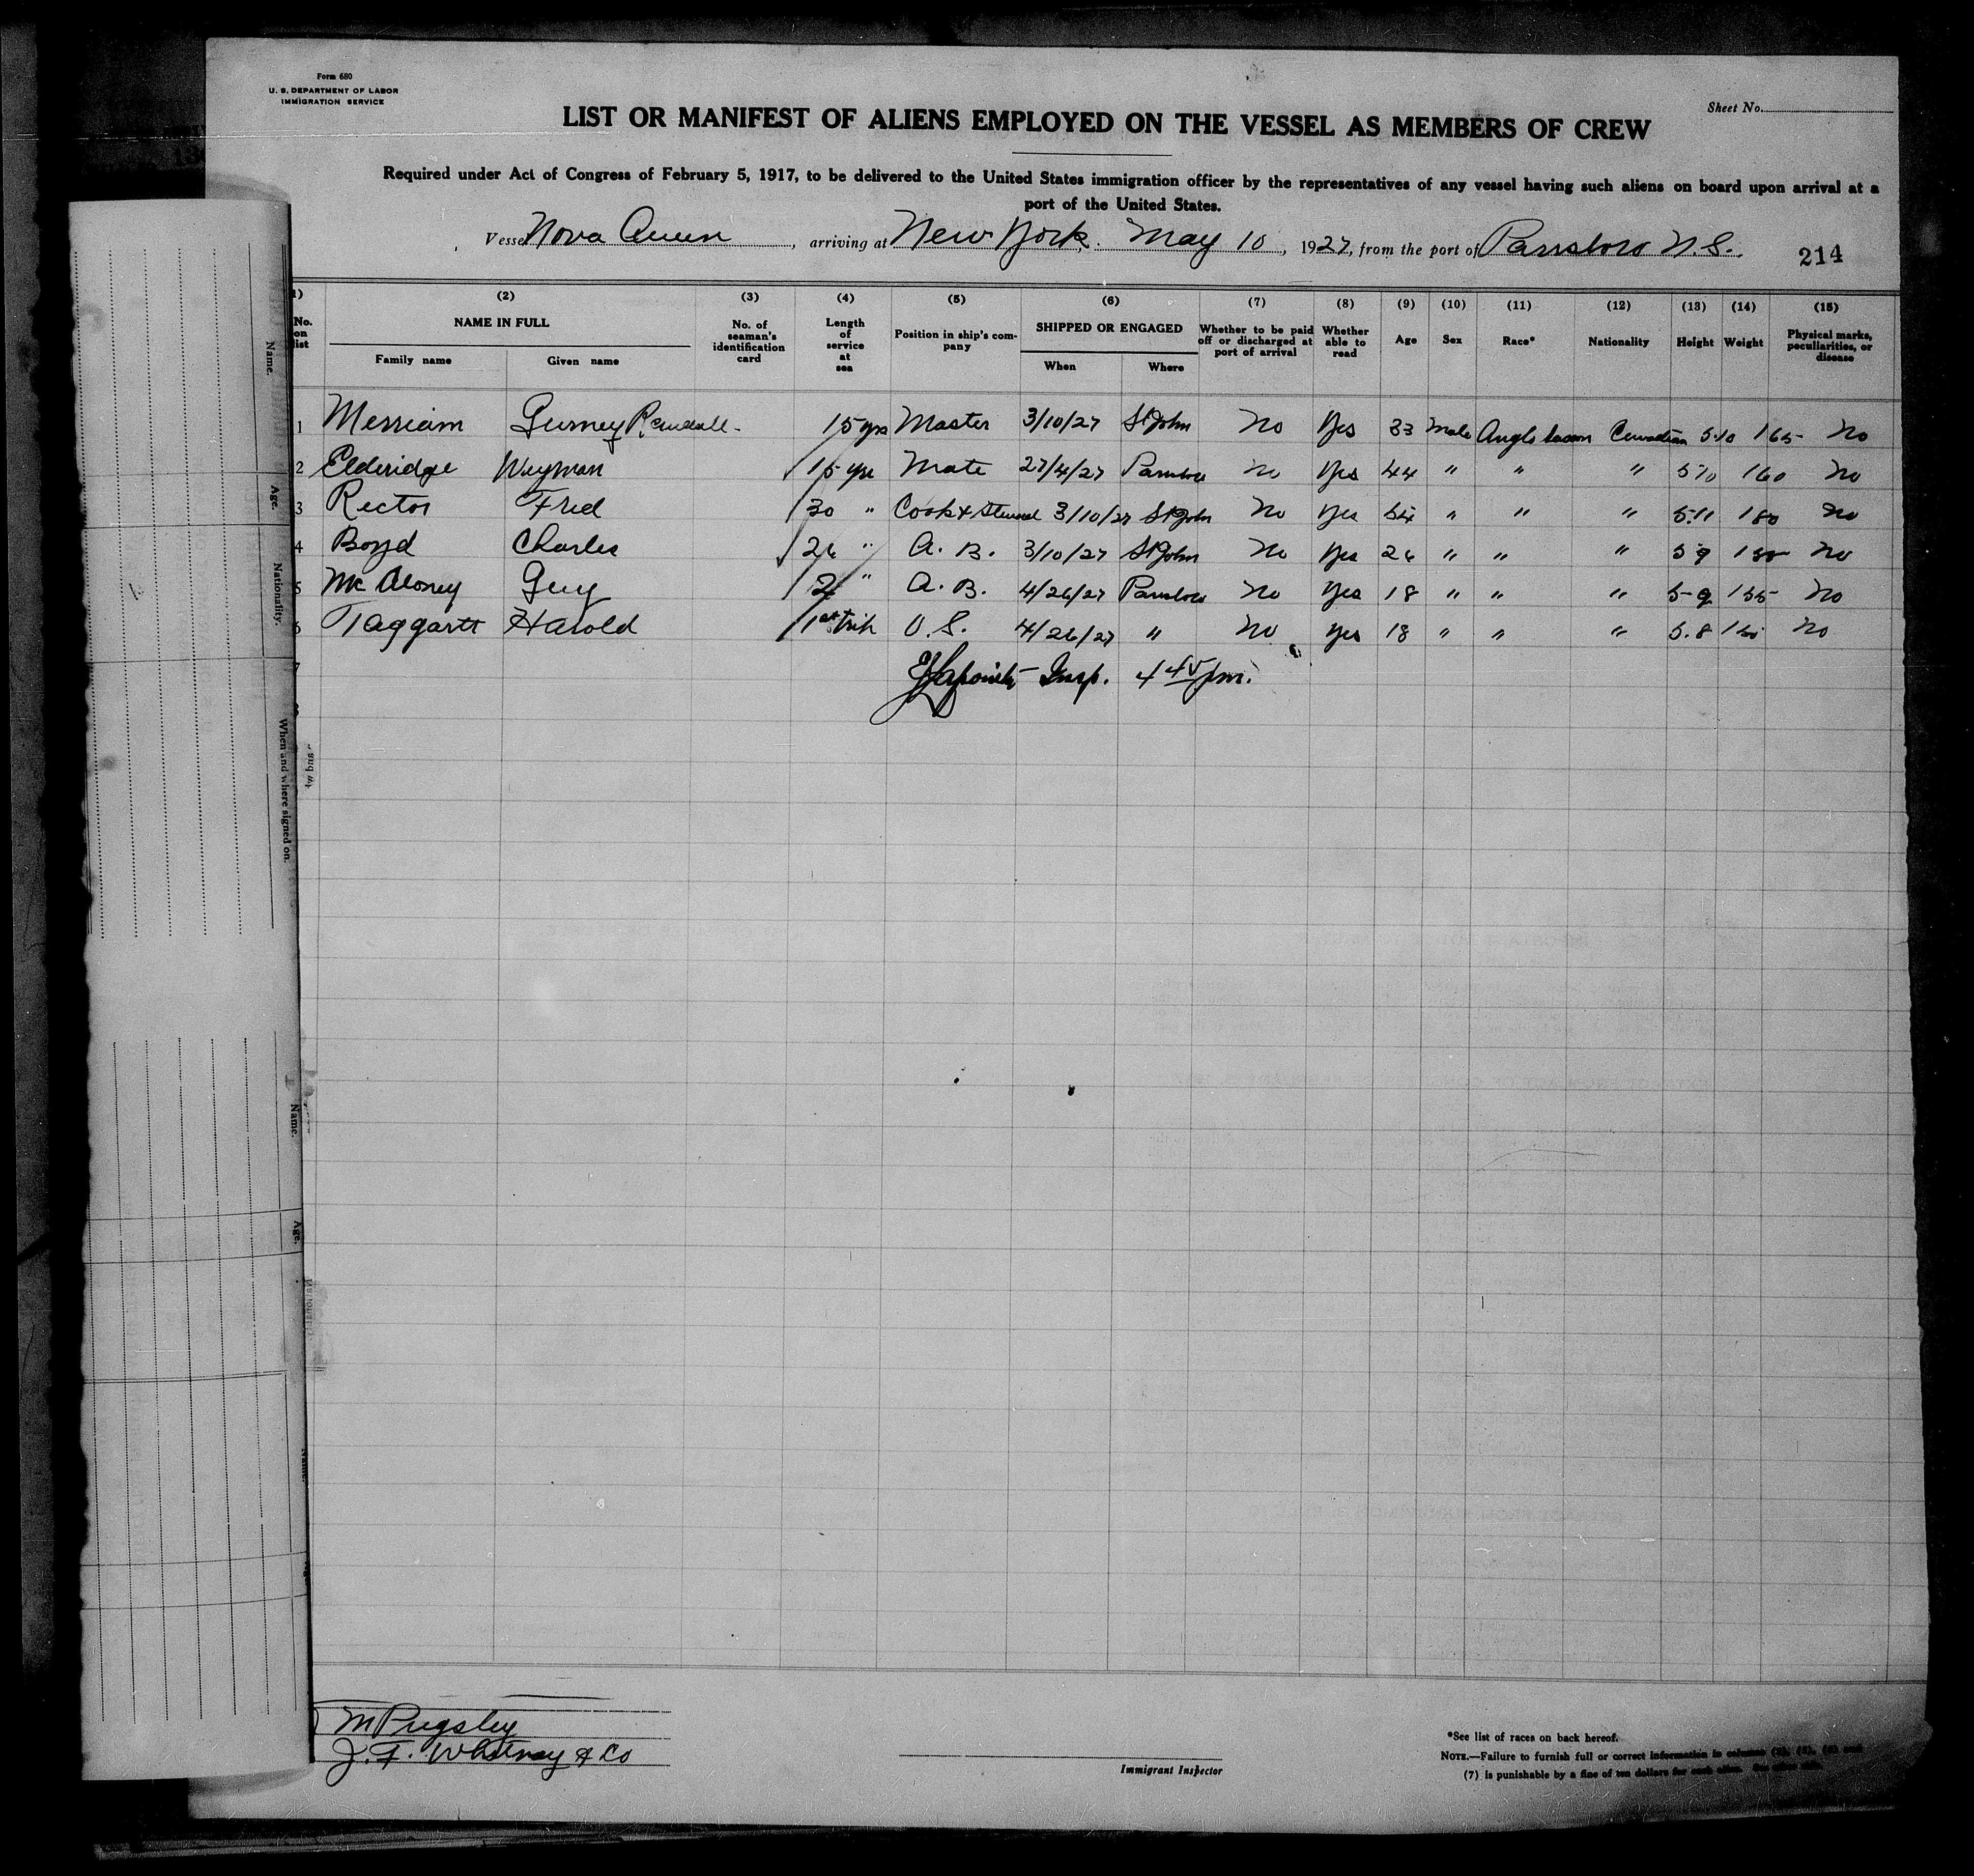 Form 680
U. S. DEPARTMENT OF LABOR
IMMIGRATION SERVICE
Sheet No.
LIST OR MANIFEST OF ALIENS EMPLOYED ON THE VESSEL AS MEMBERS OF CREW
Required under Act of Congress of February 5, 1917, to be delivered to the United States immigration officer by the representatives of any vessel having such aliens on board upon arrival at a
port of the United States.
Vessel Nova Queen, arriving at New York, May 10, 1927, from the port of Parrsboro N.S. 214
(1) (2) (3) (4) (5) (6) (7) (8) (9) (10) (11) (12) (13) (14) (15)
No. on list NAME IN FULL Family name Given name No. of seaman's identification card Length of service at sea Position in ship's company SHIPPED OR ENGAGED When Where Whether to be paid off or discharged at port of arrival Whether able to read Age Sex Race* Nationality Height Weight Physical marks, peculiarities, or disease
1 Merriam Gurney Randall 15 yrs Master 3/10/27 St John No Yes 33 Male Anglo Saxon Canadian 5.10 165 No
2 Elderidge Weyman 15 yrs Mate 27/4/27 Parrsboro No Yes 44 " " " 5 10 160 No
3 Rector Fred 30 " Cook & Steward 3/10/27 St John No Yes 54 " " " 5.11 180 No
4 Boyd Charles 26 " A. B. 3/10/27 St John No Yes 26 " " " 5 9 No
5 Mc Aloney Guy 2 " A. B. 4/26/27 Parrsboro No Yes 18 " " " 5-9 155 No
6 Taggartt Harold 1st trip O.S. 4/26/27 " No Yes 18 " " " 5.8 No
7 Insp. 4 45 pm.
Name.
Age.
Nationality.
When and where signed on.
Name.
Age.
M Pugsley
J. F. Whitney & Co
Immigrant Inspector
*See list of races on back hereof.
NOTE.—Failure to furnish full or correct information in columns (2), (5), (6) and
(7) is punishable by a fine of ten dollars for each alien.